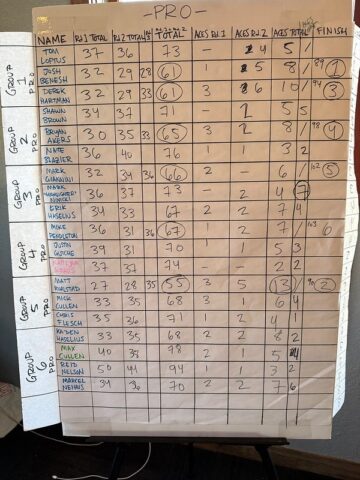 -PRO-
NAME RD.1 TOTAL RD.2 TOTAL TOTAL ACES RD.1 ACES RD.2 ACES TOTAL FINISH
GROUP 1 PRO
TOM LOPIUS 37 36 73 - 4 5 /
JOSH BENESH 32 29 28 61 - 5 8 / 89 1
DEREK HARTMAN 32 29 33 61 3 6 10 / 94 3
GROUP 2 PRO
SHAWN BROWN 34 37 71 - 2 5 5
BRYAN AKERS 30 35 33 65 3 2 8 / 98 4
NATE BLAZIER 36 40 76 1 1 3 2
GROUP 3 PRO
MARK GIANNINI 32 34 36 66 2 - 6 / 102 5
MARK 36 37 73 - 2 4 7
ERIK HASELIUS 34 33 67 2 2 7 4
GROUP 4 PRO
MIKE PENDLETON 36 31 36 67 1 2 7 / 103 6
DUSTIN 39 31 70 1 5 3
37 37 74 - - 2 2
GROUP 5 PRO
MATT KUHLSTAD 27 28 35 55 3 5 13 90 2
MICK CULLEN 33 35 68 3 1 6 4
CHRIS FLESCH 35 36 71 1 2 4 1
GROUP 6 PRO
KADEN HASELIUS 33 35 68 2 2 8 2
MAX CULLEN 40 38 78 2 5 4
REID NELSON 50 44 94 1 1 3 2
MARKEL NEHUS 34 36 70 2 2 7 6